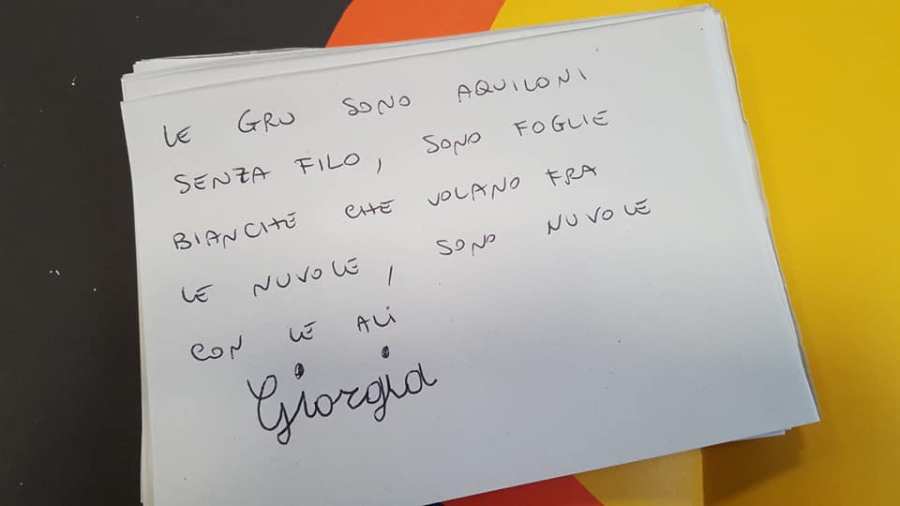 LE GRU SONO AQUILONI
SENZA FILO, SONO FOGLIE
BIANCHE CHE VOLANO FRA
LE NUVOLE, SONO NUVOLE
CON LE ALI
Giorgia